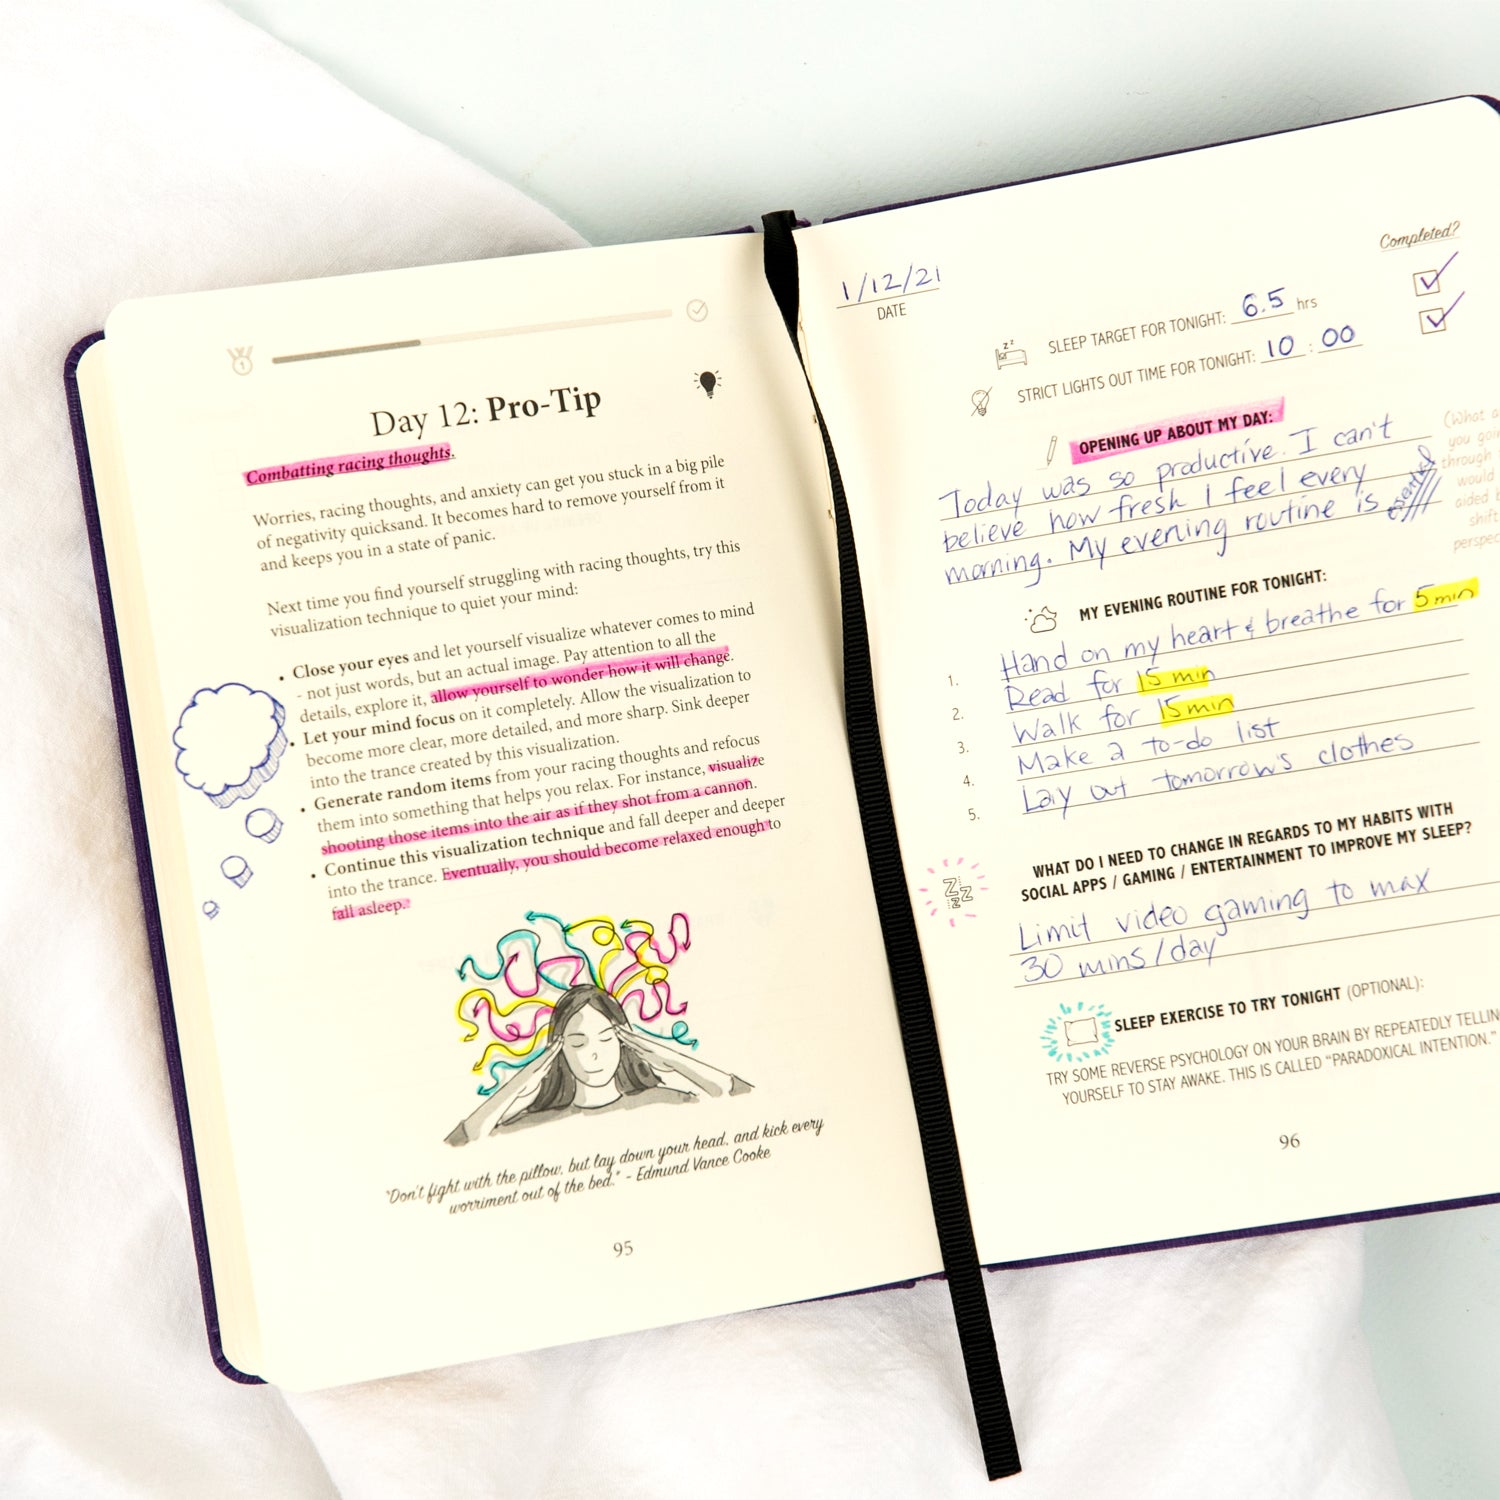 Day 12: Pro-Tip
Combatting racing thoughts.
Worries, racing thoughts, and anxiety can get you stuck in a big pile
of negativity quicksand. It becomes hard to remove yourself from it
and keeps you in a state of panic.
Next time you find yourself struggling with racing thoughts, try this
visualization technique to quiet your mind:
• Close your eyes and let yourself visualize whatever comes to mind
- not just words, but an actual image. Pay attention to all the
details, explore it, allow yourself to wonder how it will change.
• Let your mind focus on it completely. Allow the visualization to
become more clear, more detailed, and more sharp. Sink deeper
into the trance created by this visualization.
• Generate random items from your racing thoughts and refocus
them into something that helps you relax. For instance, visualize
shooting those items into the air as if they shot from a cannon.
• Continue this visualization technique and fall deeper and deeper
into the trance. Eventually, you should become relaxed enough to
fall asleep.
"Don't fight with the pillow, but lay down your head, and kick every
worriment out of the bed." - Edmund Vance Cooke
95
1/12/21
DATE
Completed?
SLEEP TARGET FOR TONIGHT: 6.5 hrs
STRICT LIGHTS OUT TIME FOR TONIGHT: 10 : 00
OPENING UP ABOUT MY DAY:
Today was so productive. I can't
believe how fresh I feel every
morning. My evening routine is
(What a
you goin
through
would
aided b
shift
perspec
MY EVENING ROUTINE FOR TONIGHT:
1. Hand on my heart & breathe for 5 min
2. Read for 15 min
3. Walk for 15 min
4. Make a to-do list
5. Lay out tomorrow's clothes
WHAT DO I NEED TO CHANGE IN REGARDS TO MY HABITS WITH
SOCIAL APPS / GAMING / ENTERTAINMENT TO IMPROVE MY SLEEP?
Limit video gaming to max
30 mins/day
SLEEP EXERCISE TO TRY TONIGHT (OPTIONAL):
TRY SOME REVERSE PSYCHOLOGY ON YOUR BRAIN BY REPEATEDLY TELLIN
YOURSELF TO STAY AWAKE. THIS IS CALLED "PARADOXICAL INTENTION."
96